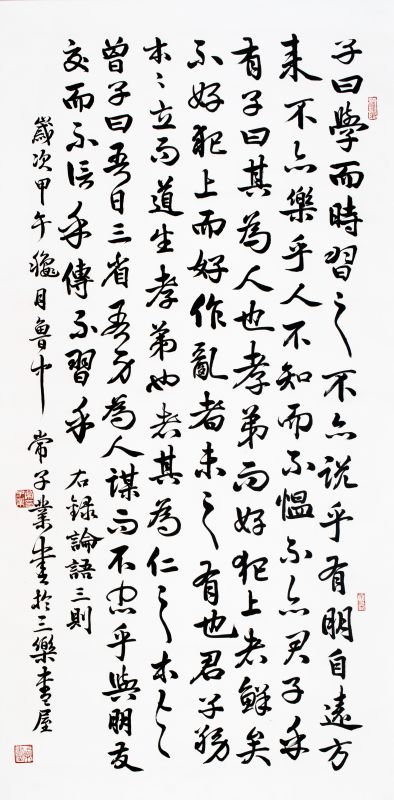 子曰學而時習之不亦説乎有朋自遠方
来不亦樂乎人不知而不愠不亦君子乎
有子曰其為人也孝弟而好犯上者鮮矣
不好犯上而好作亂者未之有也君子務
本〻立而道生孝弟也者其為仁之本与
曾子曰吾日三省吾身為人謀而不忠乎與朋友
交而不信乎傳不習乎 右録論語三則
歲次甲午穐月魯中常子業書於三樂書屋